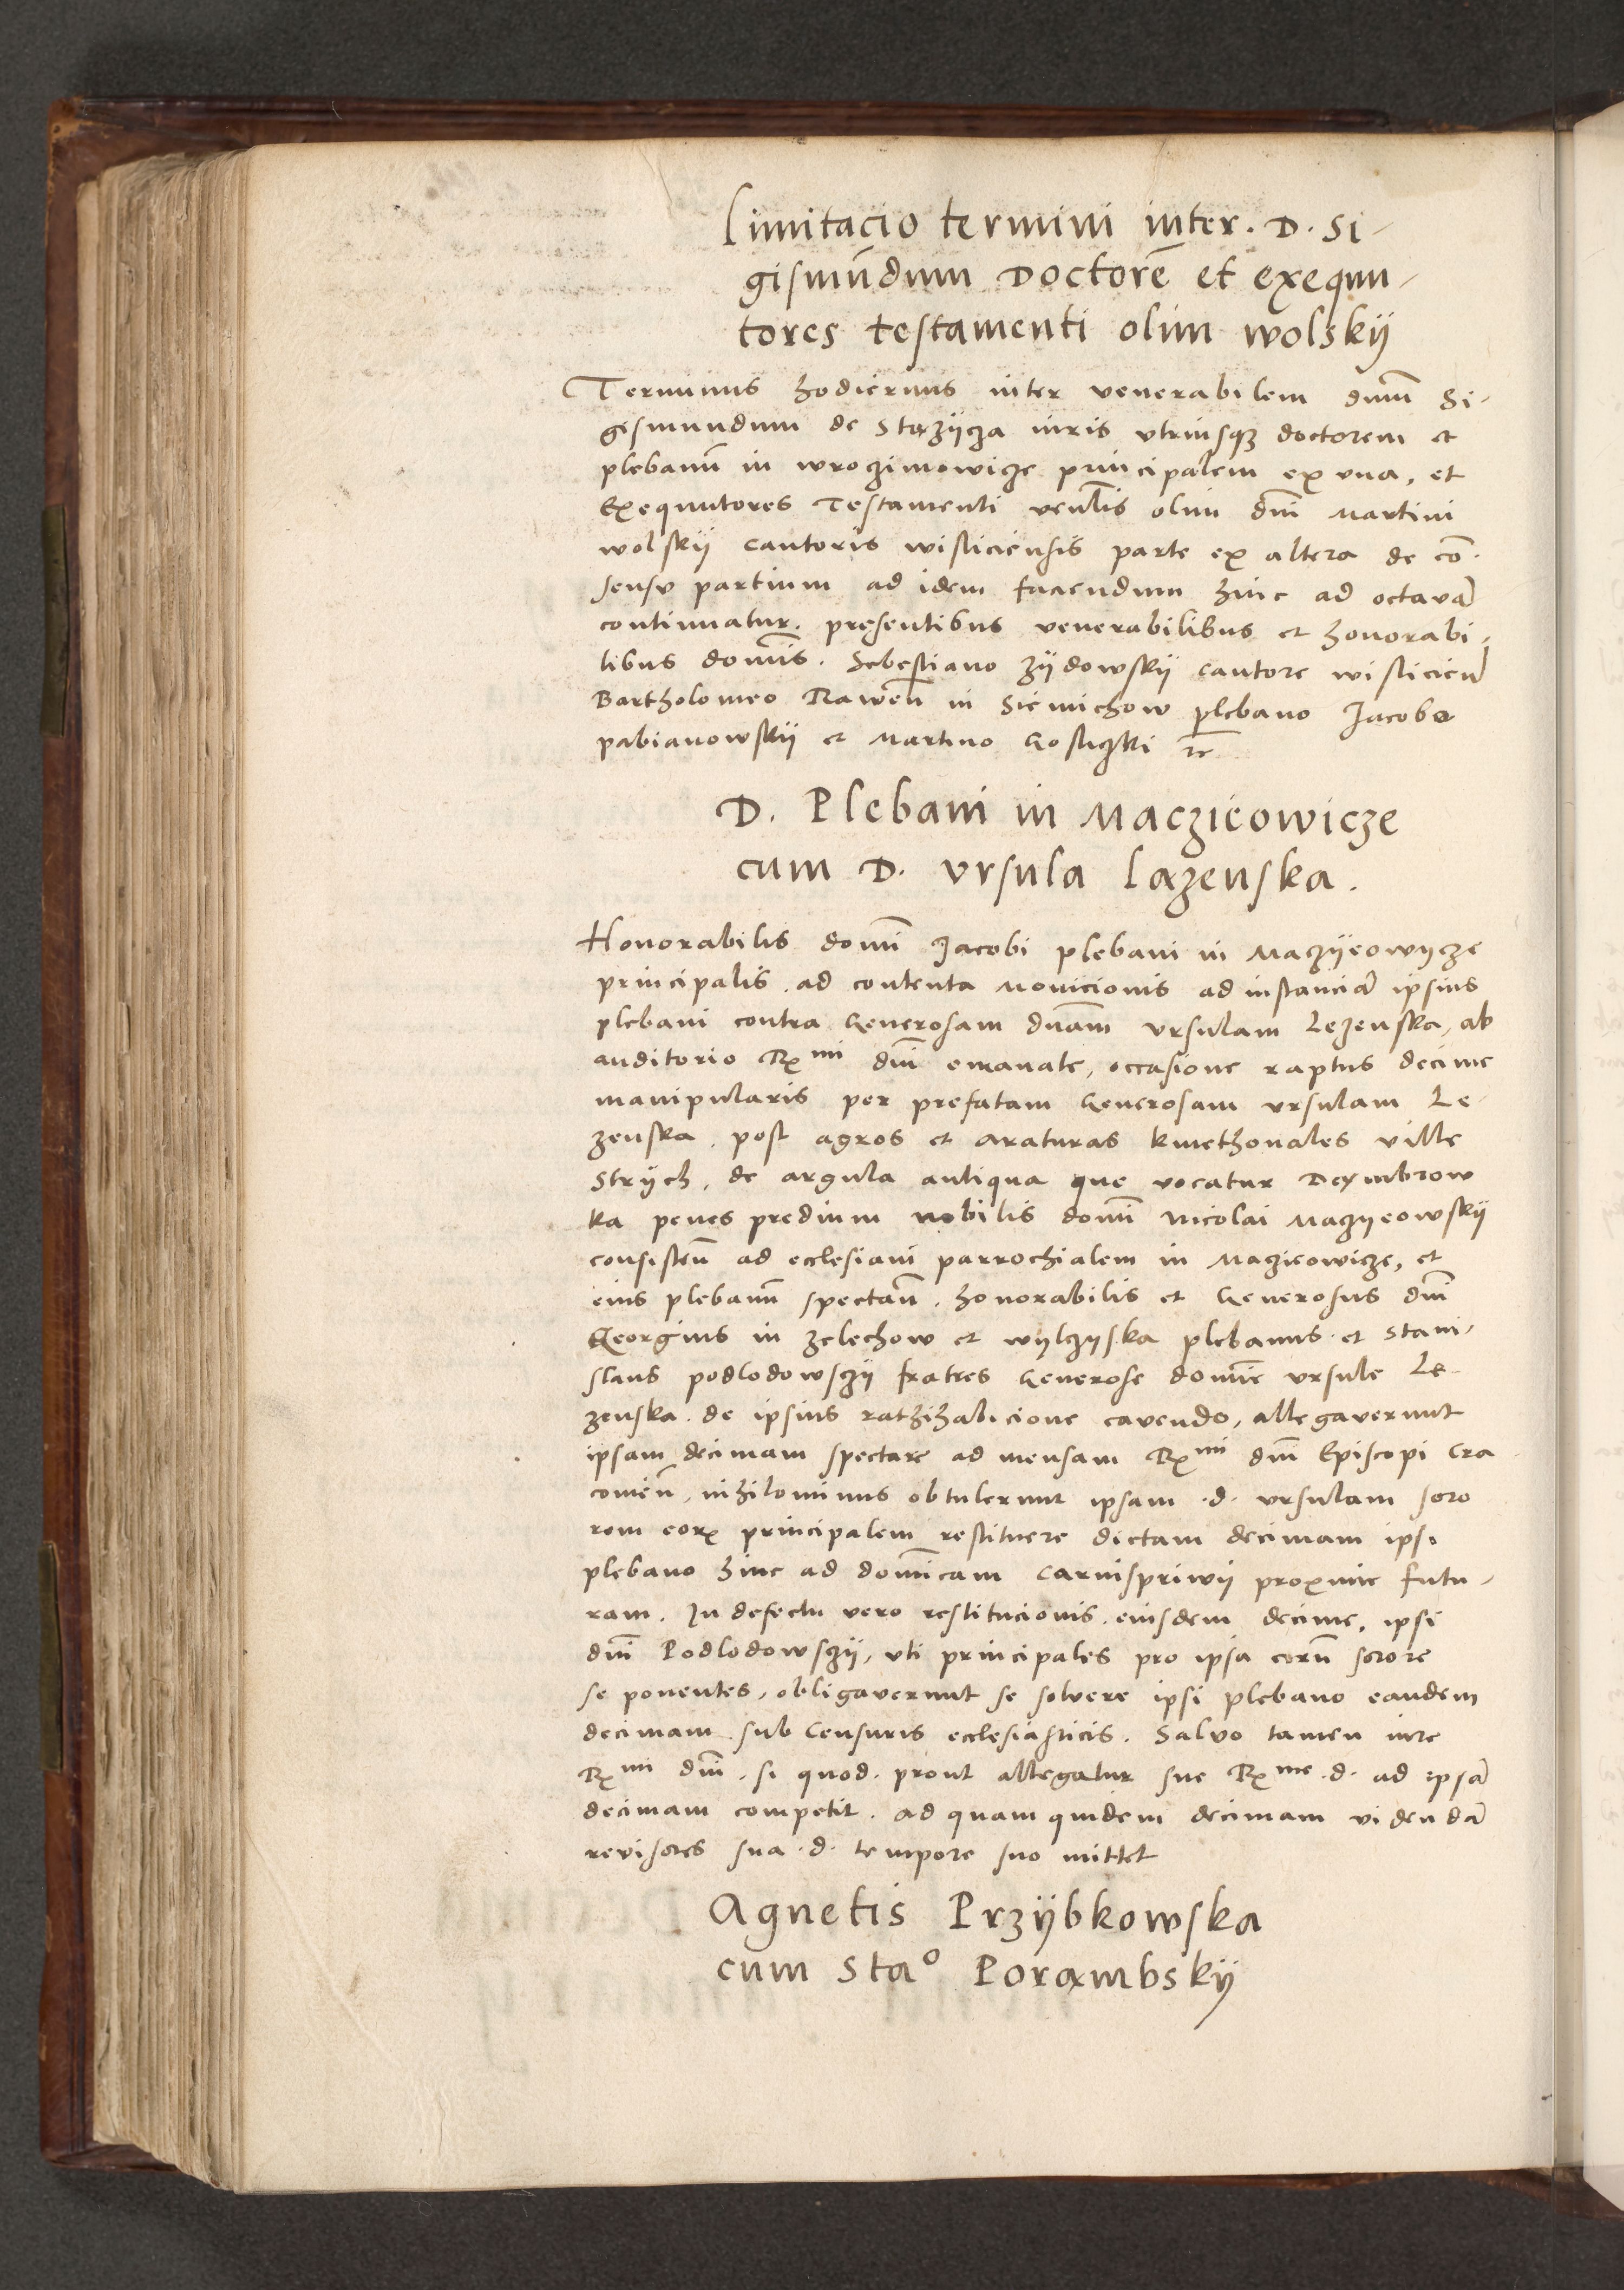 Limitacio termini inter. D. Si-
gismundum Doctorē et exequu-
tores testamenti olim wolskÿ
Terminus hodiernus inter venerabilem dnm̄ Si-
gismundum de Stązÿcza iuris vtriusqꝫ doctorem et
plebanū in wroczimowicze principalem ex vna, et
Exequutores Testamenti venlis̄ olim dnī Martini
wolskÿ Cantoris wisliciensis parte ex altera de cō-
sensu partium ad idem faciendum hinc ad octavā
continuatur. presentibus venerabilibus et honorabi-
libus domīs. Sebestiano Zÿdowskÿ Cantore wislicień
Bartholomeo Raweń in Siemichow plebano Jacobo
pabianowskÿ et Martino Gosliczki rc̄
D. Plebani in Maczieowicze
cum D. Vrsula Lazenska.
Honorabilis domī Jacobi plebani in Maczÿeowÿcze
principalis. ad contenta Monicionis ad instanciā ipsius
plebani contra Generosam dnām Vrsulam Lezenska, ab
auditorio Rx mi dnī emanate, occasione raptus decime
manipularis per prefatam Generosam Vrsulam Le-
zenska. post agros et araturas kmethonales ville
Strÿch, de argula antiqua que vocatur Dęmbrow
ka penes predium nobilis domī Nicolai Maczyeowskÿ
consisteň ad ecclesiam parrochialem in Maczieowicze, et
eius plebanū spectań. honorabilis et Generosus dnī
Georgius in Zelechow et wÿlczÿska plebanus. et Stani-
slaus podlodowsczÿ fratres Generose domīe Vrsule Le-
zenska. de ipsius rathihabicione cavendo, allegaverunt
ipsam decimam spectare ad mensam Rx mi dnī Episcopi Cra
covień, nihilominus obtulerunt ipsam .d. Vrsulam soro
rem eorꝝ principalem restituere dictam decimam ipsi
plebano hinc ad domīcam Carnispriwÿ proxime futu-
ram. In defectu vero restitucionis eiusdem decime, ipsi
dnī Podlodowsczÿ, vti principales pro ipsa eorū sorore
se ponentes, obligaverunt se solvere ipsi plebano eandem
decimam sub Censuris ecclesiasticis. Salvo tamen iure
Rx mi dnī. si quod. prout allegatur sue Rx me .d. ad ipsā
decimam competit. ad quam quidem decimam videndā
revisores sua .d. tempore suo mittet
Agnetis Przÿbkowska
cum Sta° Porąmbskÿ